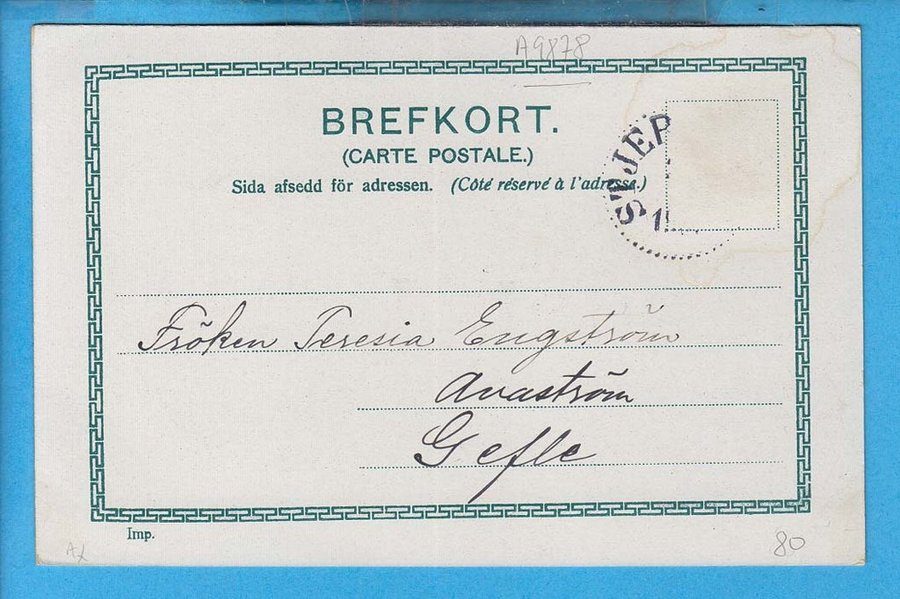 A9878
BREFKORT.
(CARTE POSTALE.)
Sida afsedd för adressen. (Côté réservé à l'adresse.)
STJER
Fröken Teresia Engström
Avaström
Gefle
Imp.
80